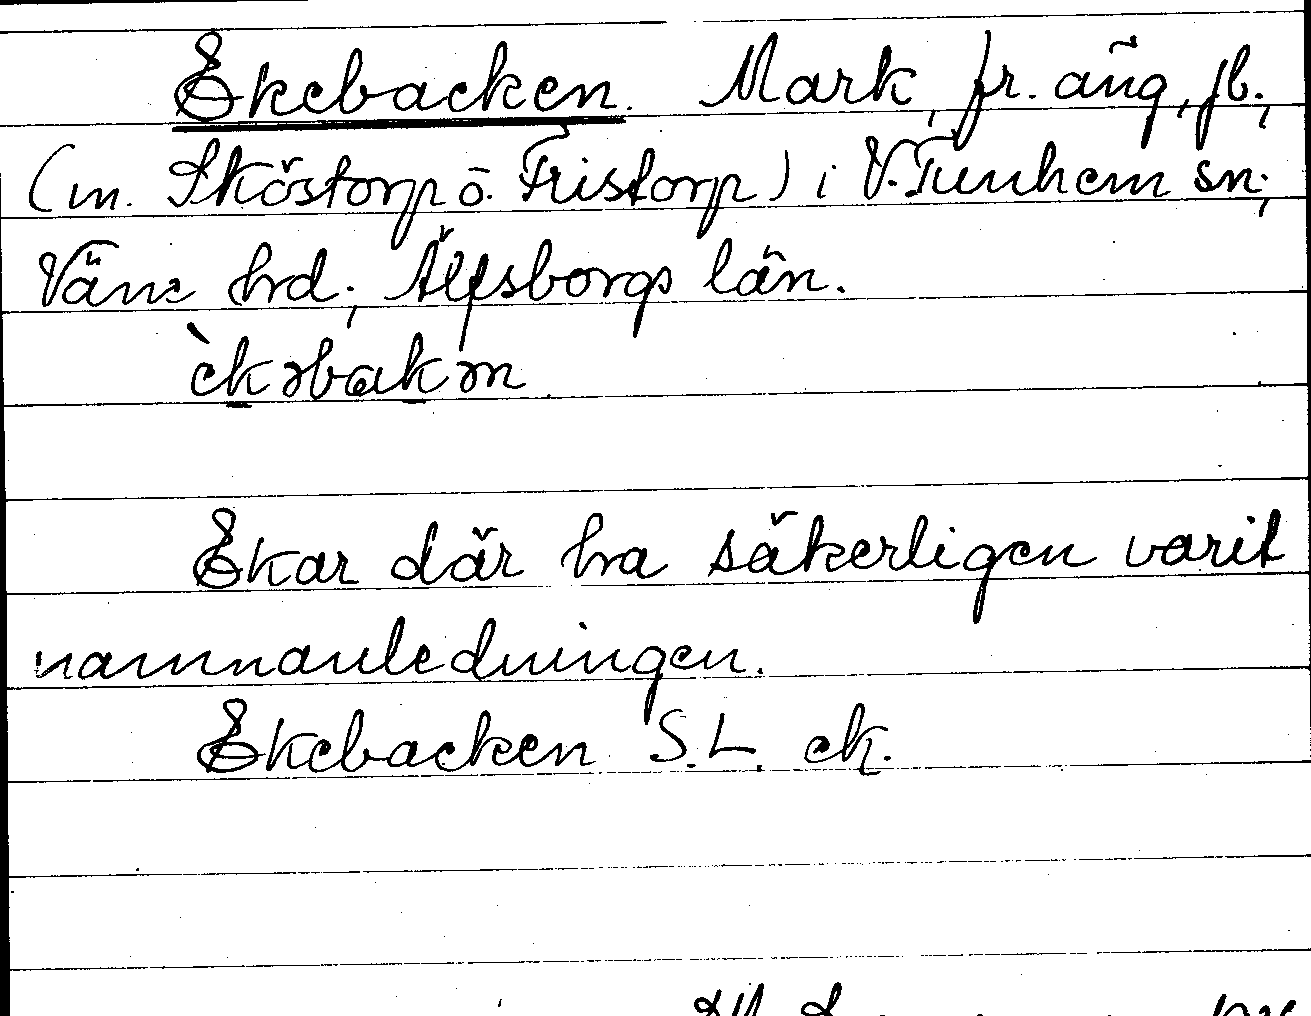 Ekebacken. Mark, fr. äng, fb.,
(m. Sköstorp o. Fristorp) i V. Tunhem sn.,
Väne hrd., Älfsborgs län.
èkəbakən
Ekar där ha säkerligen varit
namnanledningen.
Ekebacken S.L. ek.